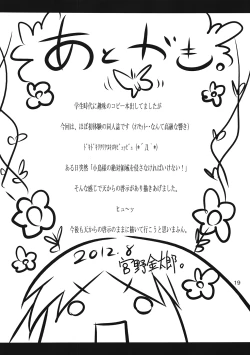 あとがき。
学生時代に趣味のコピー本出してましたが
今回は、ほぼ初体験の同人誌です
なんて良識な響き
ある日突然「小鳥様の絶対領域を侵さなければいけない！」
そんな感じで天からの啓示があり描きあげました。
ヒューッ
今後も天からの啓示のままに描いて行こうと思いまふん。
2012.8
宮野金太郎。
19